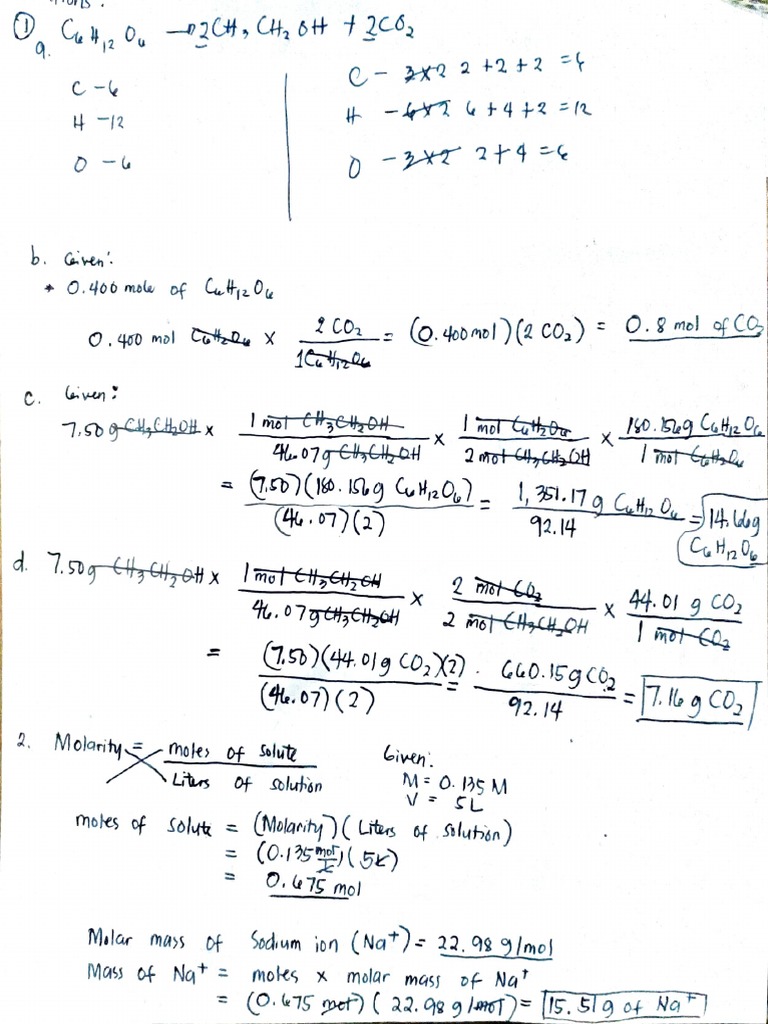 ① C6H12O6 → 2CH3CH2OH + 2CO2
a.
C - 6
H - 12
O - 6
C - 3×2 2+2+2 = 6
H - 6×2 6+4+2 = 12
O - 3×2 2+4 = 6
b. Given:
* 0.400 mole of C6H12O6
0.400 mol C6H12O6 × 2 CO2 / 1 C6H12O6 = (0.400 mol)(2 CO2) = 0.8 mol of CO2
c. Given:
7.50 g CH3CH2OH × 1 mol CH3CH2OH / 46.07 g CH3CH2OH × 1 mol C6H12O6 / 2 mol CH3CH2OH × 180.156 g C6H12O6 / 1 mol C6H12O6
= (7.50)(180.156 g C6H12O6) / (46.07)(2) = 1,351.17 g C6H12O6 / 92.14 = 14.66 g C6H12O6
d. 7.50 g CH3CH2OH × 1 mol CH3CH2OH / 46.07 g CH3CH2OH × 2 mol CO2 / 2 mol CH3CH2OH × 44.01 g CO2 / 1 mol CO2
= (7.50)(44.01 g CO2)(2) / (46.07)(2) = 660.15 g CO2 / 92.14 = 7.16 g CO2
2. Molarity = moles of solute / Liters of solution
Given:
M = 0.135 M
V = 5L
moles of solute = (Molarity)(Liters of solution)
= (0.135 mol/L)(5L)
= 0.675 mol
Molar mass of Sodium ion (Na+) = 22.98 g/mol
Mass of Na+ = moles × molar mass of Na+
= (0.675 mol)(22.98 g/mol) = 15.51 g of Na+